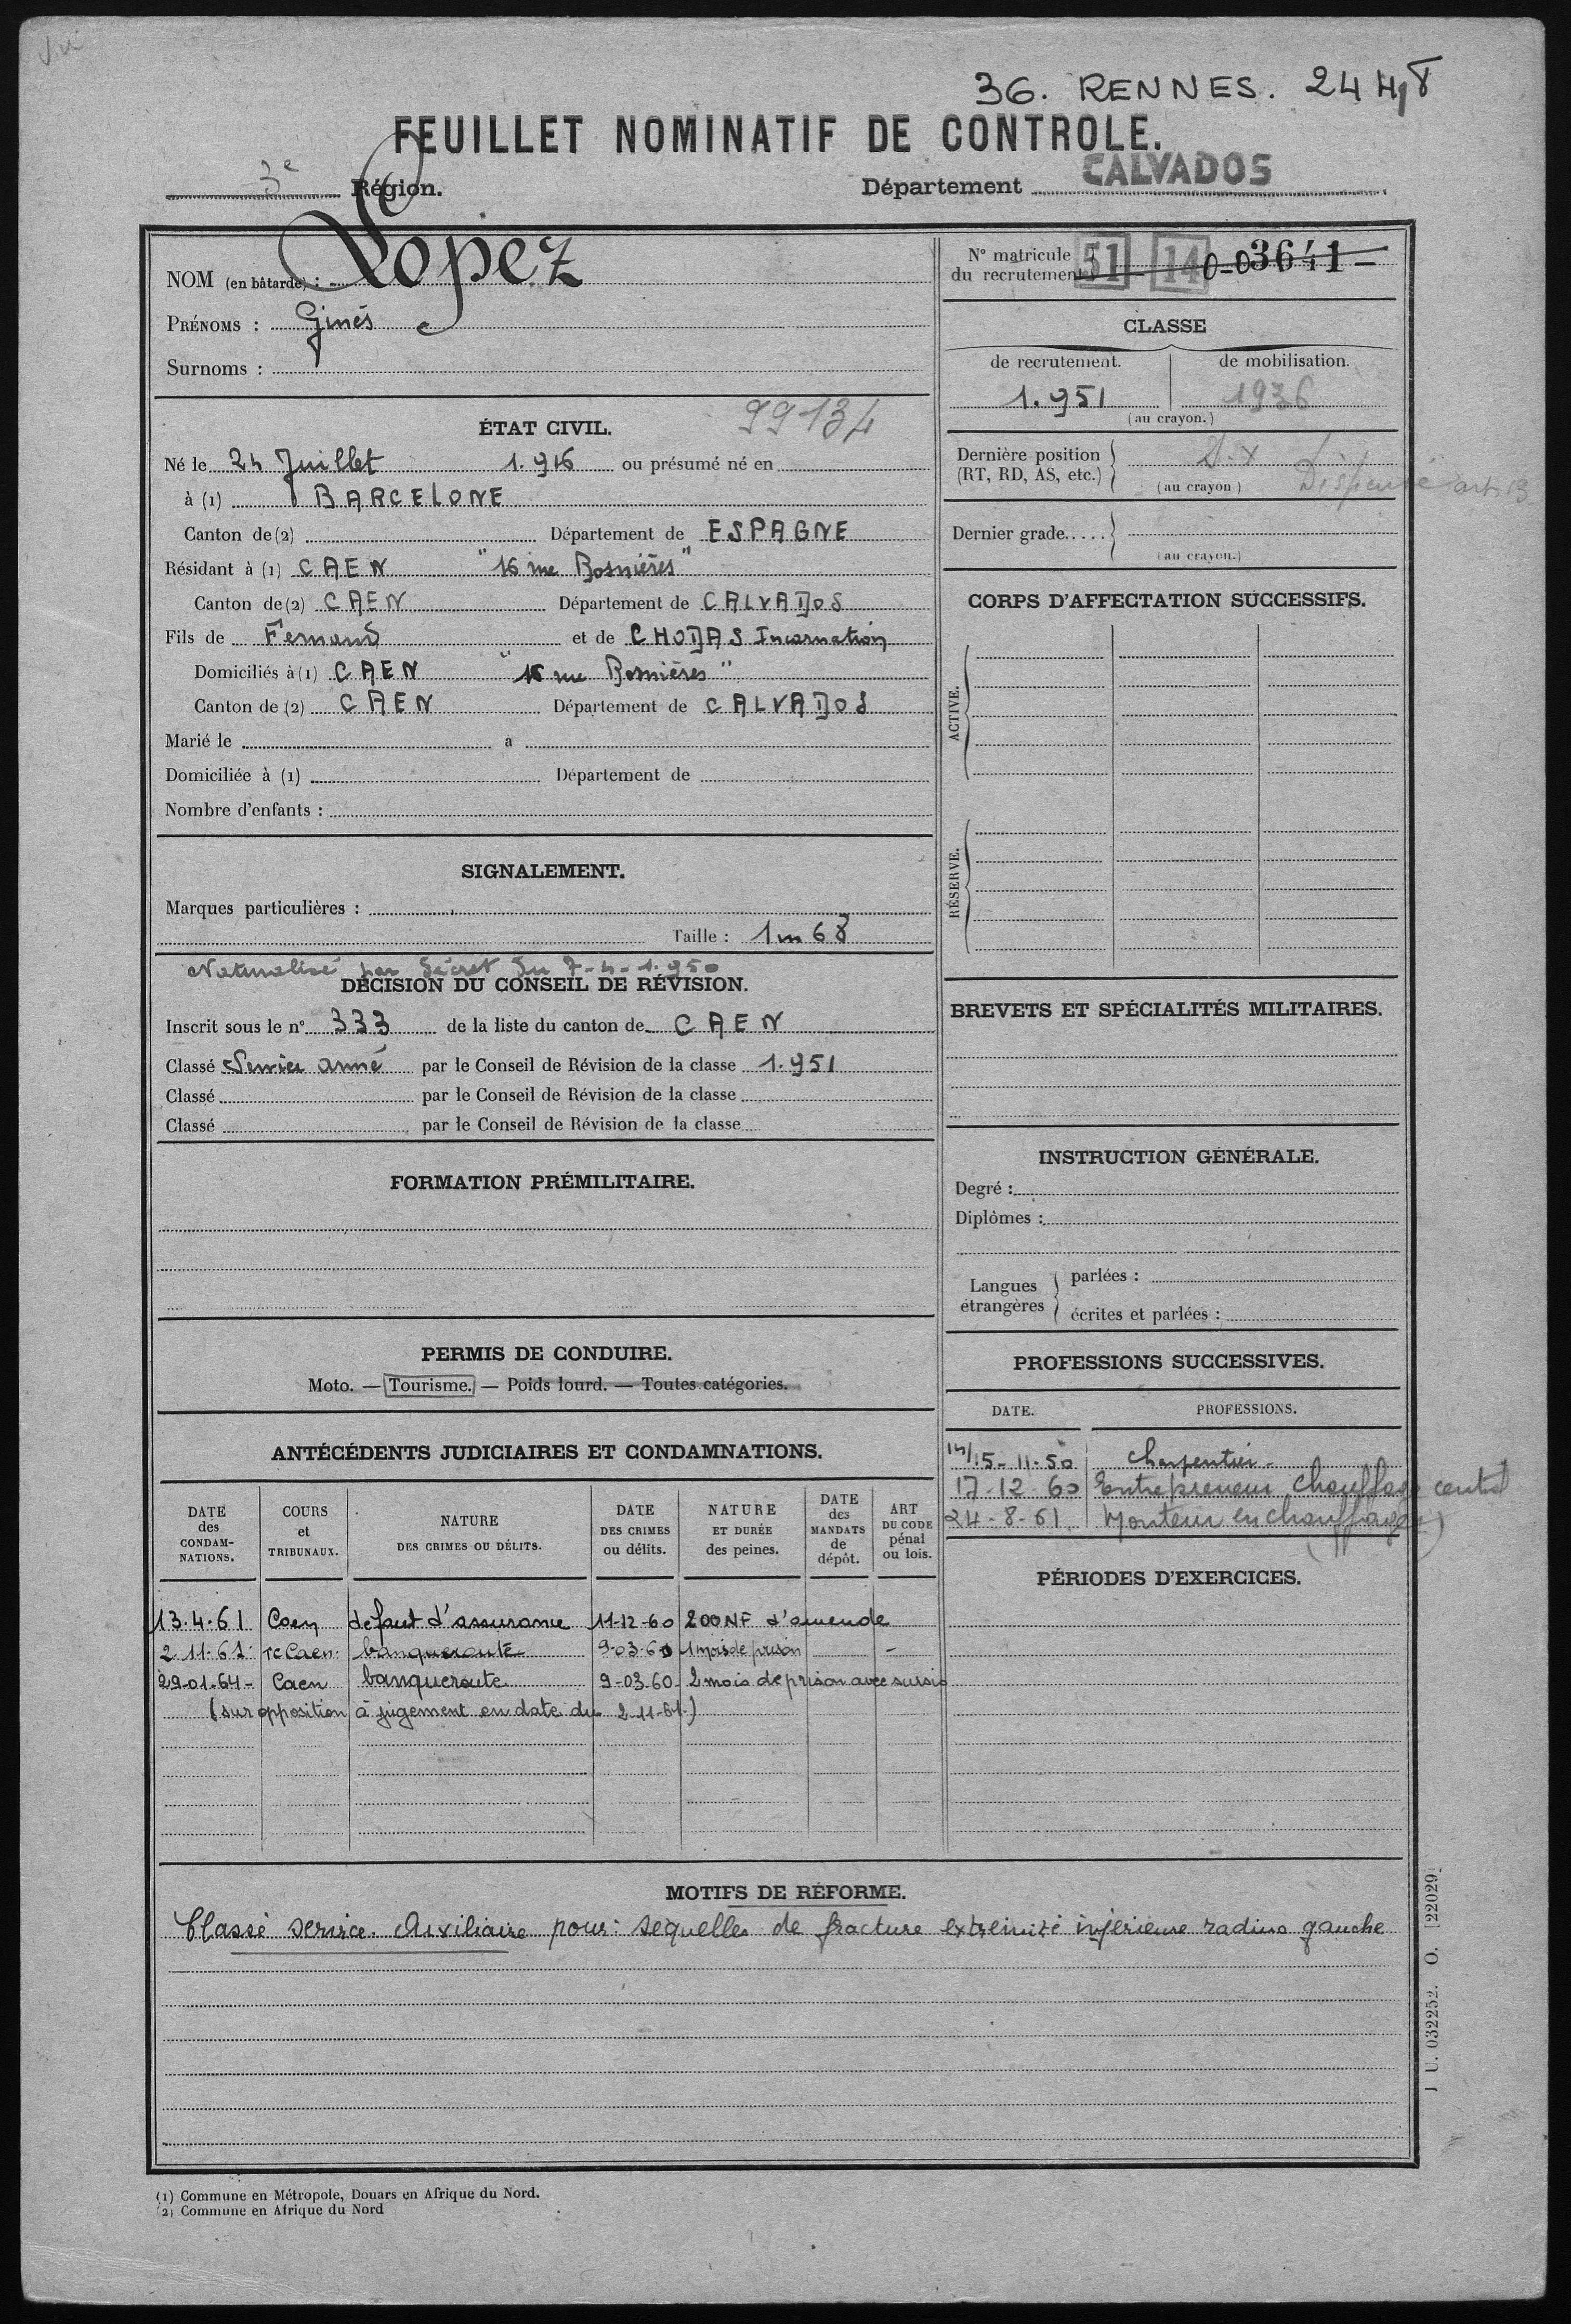 36. RENNES. 2448
FEUILLET NOMINATIF DE CONTROLE.
3e Région.
Département CALVADOS
NOM (en bâtarde) : Lopez
PRÉNOMS : Ginés
Surnoms :
ÉTAT CIVIL. 99134
Né le 24 Juillet 1.916 ou présumé né en
à (1) BARCELONE
Canton de (2) Département de ESPAGNE
Résidant à (1) CAEN "16 rue Bosnières"
Canton de (2) CAEN Département de CALVADOS
Fils de Fernand et de CHODAS Incarnation
Domiciliés à (1) CAEN "16 rue Bosnières"
Canton de (2) CAEN Département de CALVADOS
Marié le à
Domiciliée à (1) Département de
Nombre d'enfants :
SIGNALEMENT.
Marques particulières :
Taille : 1m68
Naturalisé par Décret du 7-4-1.950
DÉCISION DU CONSEIL DE RÉVISION.
Inscrit sous le n° 333 de la liste du canton de CAEN
Classé Service armé par le Conseil de Révision de la classe 1.951
Classé par le Conseil de Révision de la classe
Classé par le Conseil de Révision de la classe
FORMATION PRÉMILITAIRE.
PERMIS DE CONDUIRE.
Moto. — Tourisme. — Poids lourd. — Toutes catégories.
ANTÉCÉDENTS JUDICIAIRES ET CONDAMNATIONS.
DATE des CONDAMNATIONS. COURS et TRIBUNAUX. NATURE DES CRIMES OU DÉLITS. DATE DES CRIMES ou délits. NATURE ET DURÉE des peines. DATE des MANDATS de dépôt. ART DU CODE pénal ou lois.
13.4.61 Caen défaut d'assurance 11-12-60 200 NF d'amende
2.11.61 Tc Caen banqueroute 9-03-60 1 mois de prison -
29-01-64- Caen banqueroute 9-03-60 2 mois de prison avec sursis
(sur opposition à jugement en date du 2-11-61)
N° matricule du recrutement 51 14 0-03641-
CLASSE
de recrutement. de mobilisation.
1.951 1936
(au crayon.)
Dernière position
(RT, RD, AS, etc.)
(au crayon)
Dispensé art 13
Dernier grade.....
(au crayon.)
CORPS D'AFFECTATION SUCCESSIFS.
ACTIVE.
RÉSERVE.
BREVETS ET SPÉCIALITÉS MILITAIRES.
INSTRUCTION GÉNÉRALE.
Degré :
Diplômes :
Langues étrangères
parlées :
écrites et parlées :
PROFESSIONS SUCCESSIVES.
DATE. PROFESSIONS.
14/15-11-50 Charpentier-
17-12-60 Entrepreneur chauffage central
24-8-61 Monteur en chauffage
PÉRIODES D'EXERCICES.
MOTIFS DE RÉFORME.
Classé service Auxiliaire pour: séquelles de fracture extrémité inférieure radius gauche
J U. 032252. O. [22029]
(1) Commune en Métropole, Douars en Afrique du Nord.
(2) Commune en Afrique du Nord